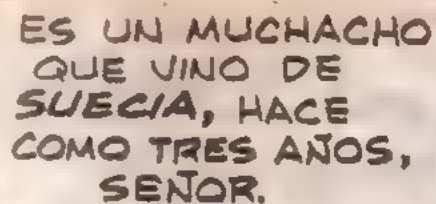 ES UN MUCHACHO
QUE VINO DE
SUECIA, HACE
COMO TRES AÑOS,
SEÑOR.